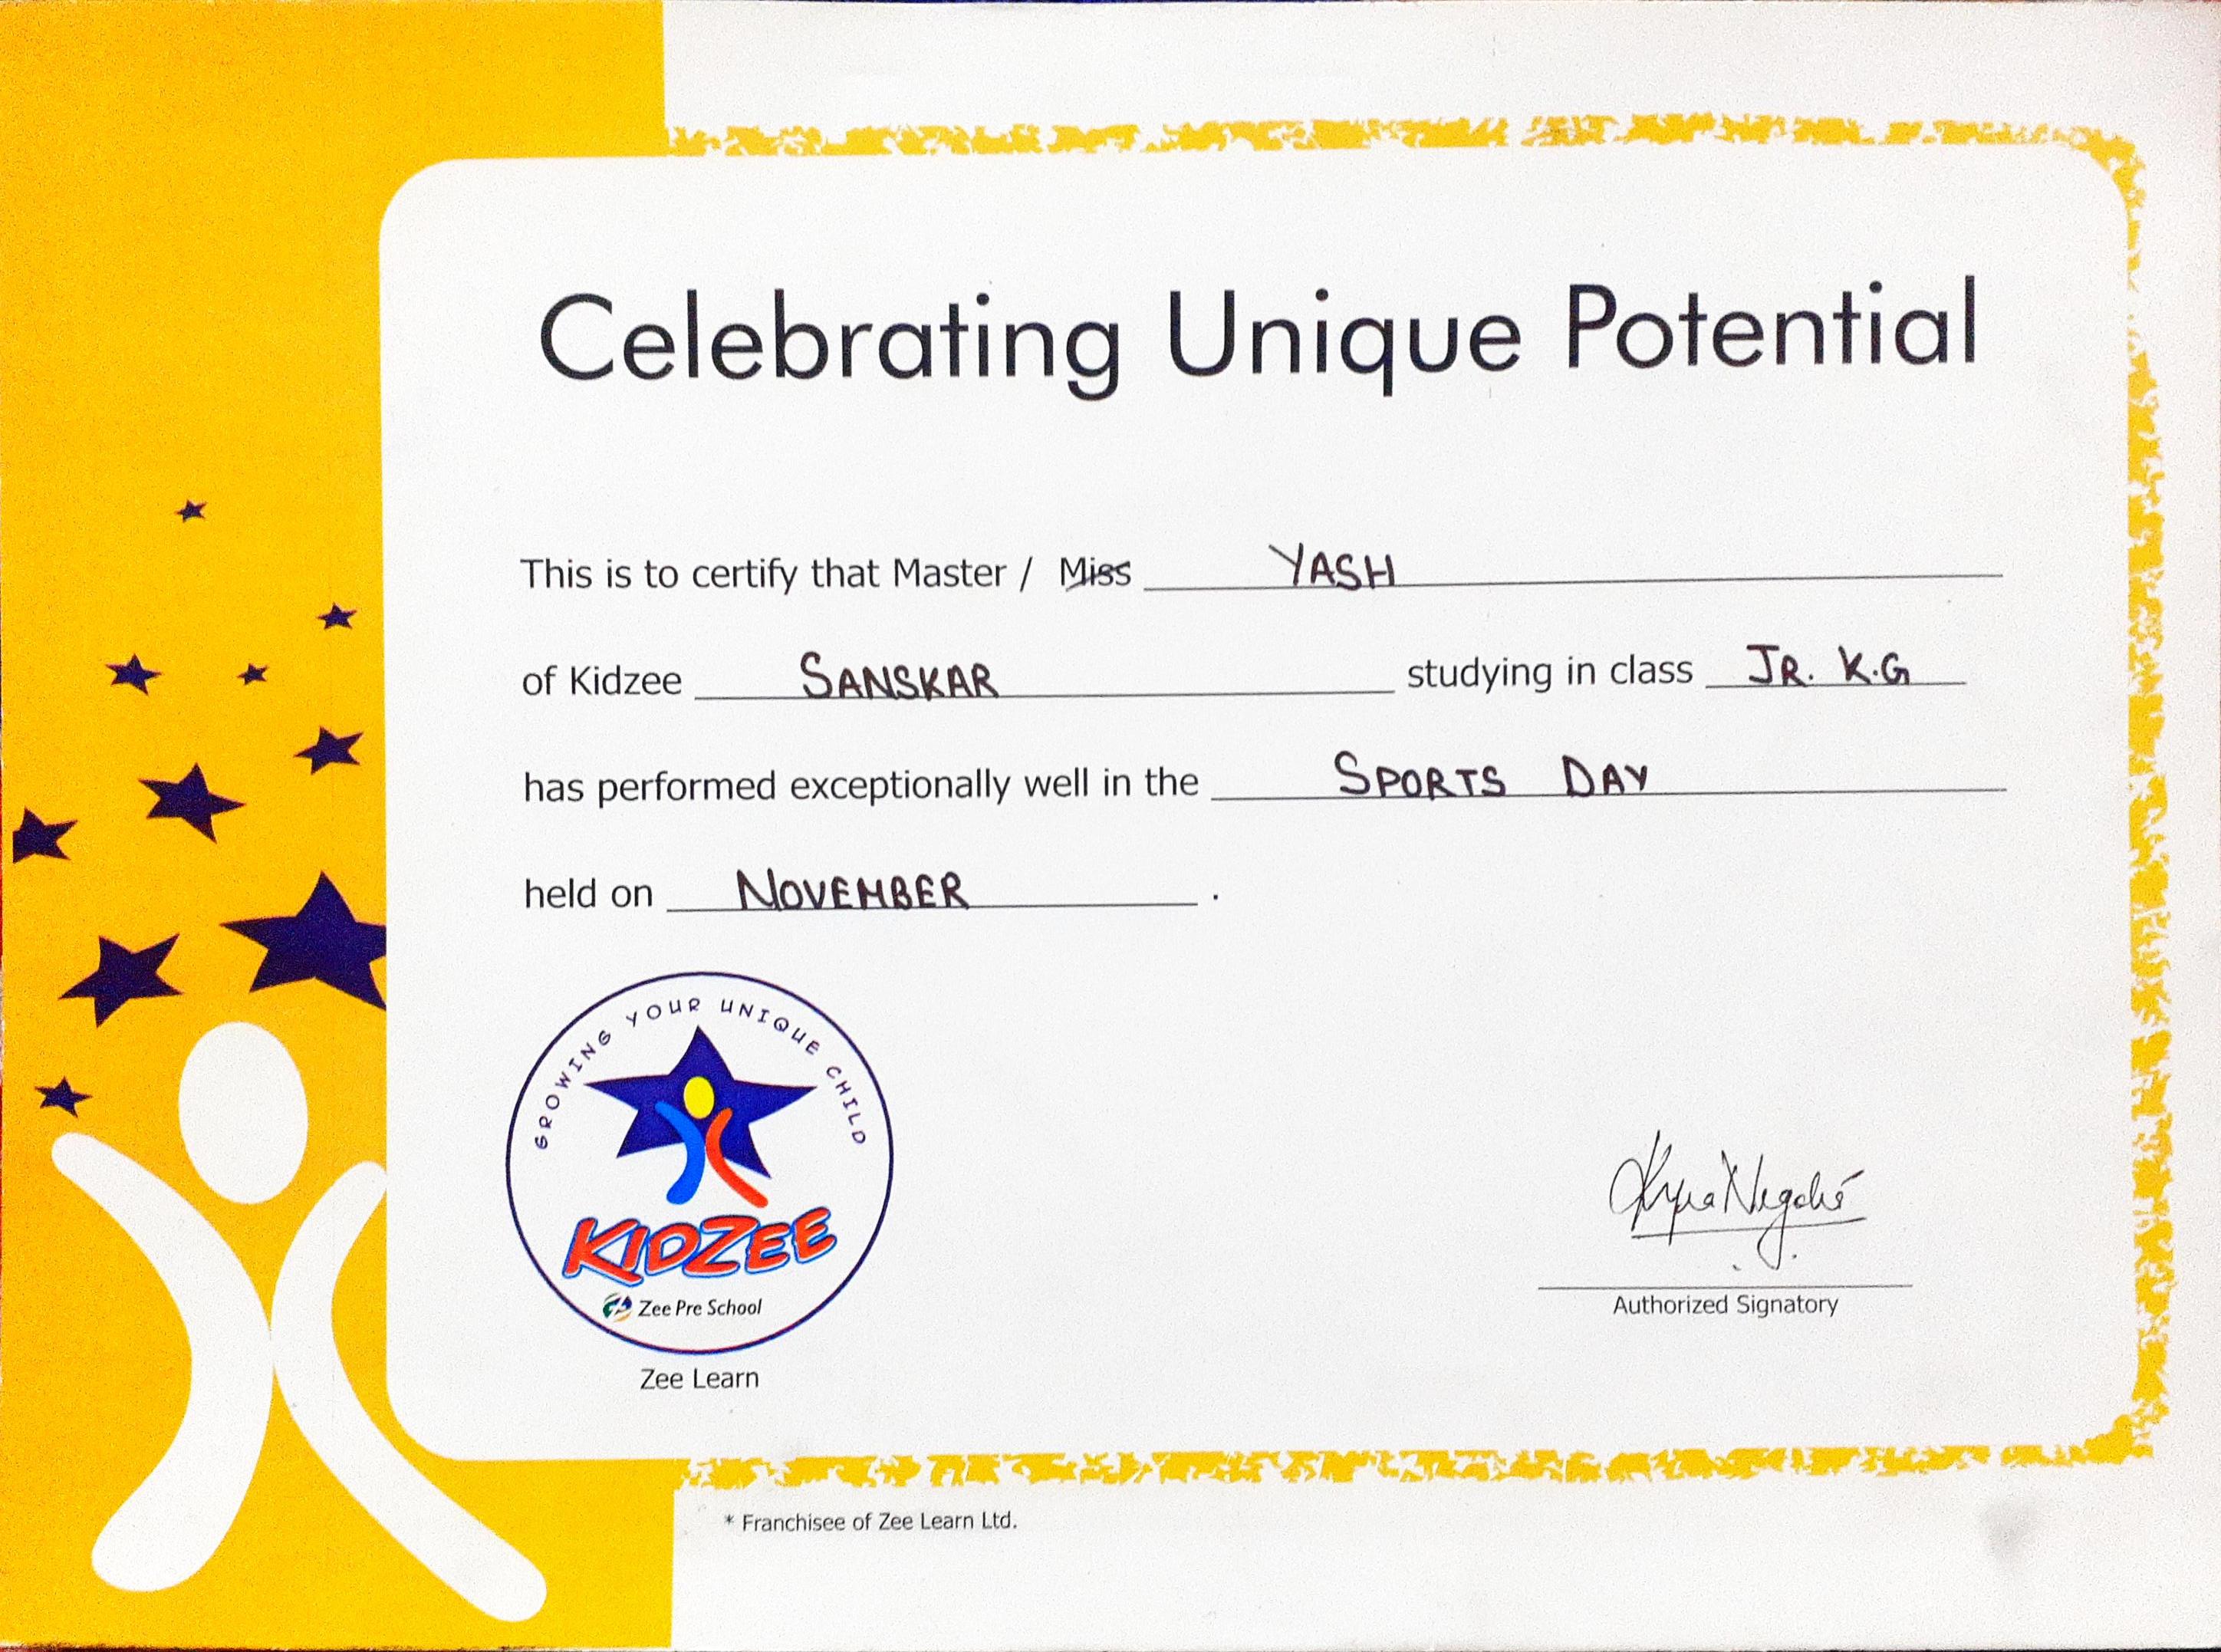 Celebrating Unique Potential
This is to certify that Master / Miss YASH
of Kidzee SANSKAR studying in class JR. K.G
has performed exceptionally well in the SPORTS DAY
held on NOVEMBER .
GROWING YOUR UNIQUE CHILD
KIDZEE
Zee Pre School
Zee Learn
Authorized Signatory
* Franchisee of Zee Learn Ltd.